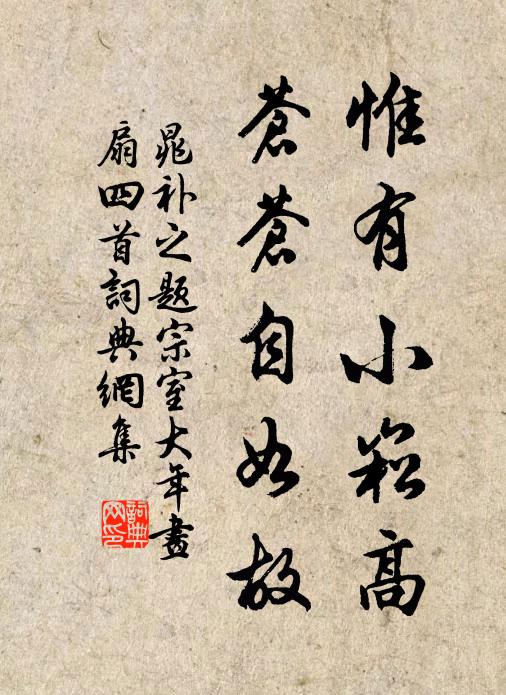 惟有小崧高
蒼蒼自如故
晁补之题宗室大年畫
扇四首詞典網集
詞典網印